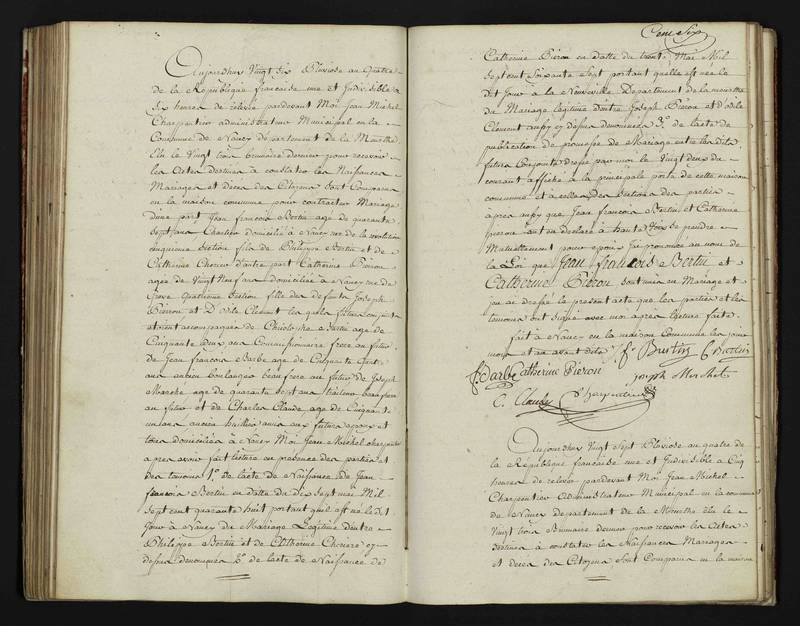 Aujourdhuy Vingt Six Pluviose au quatre
de la République francaise une et Indivisible à
six heures de relevée pardevant Moi Jean Michel
Charpentier administrateur Municipal en la
Commune de Nancy département de la Meurthe
Elu le Vingt trois brumaire dernier pour recevoir
les Actes destinés à constater les Naissances
Mariages et deces des Citoyens Sont Comparus
en la maison commune pour contracter Mariage
dune part Jean francois Bertin age de quarante
Sept ans Chartier domicilié à Nancy rue de la révolution
cinquieme Section fils de Philippe Bertin et de
Catherine d'autre part Catherine Pieron
agée de Vingt Neuf ans domiciliée à Nancy rue de
Greve quatrieme Section fille des defunts Joseph
Pierron et D'Odile Clement lesquels futurs conjoints
etoient accompagnés de Christophe Bertin age de
Cinquante deux ans Commissionnaire frere au futur
de Jean francois Barbe age de Cinquante
ans ancien boulanger beau frere au futur de Joseph
Marche age de quarante Sept ans beau frere
au futur et de Charles Claude age de Cinquante
un ans ancien huillier amis aux futurs epoux et
tous domiciliés à Nancy Moi Jean Michel charpentier
apres avoir fait lecture en presence des parties et
des temoins 1.° de lacte de Naissance de Jean
francois Bertin en datte du dix Sept mai Mil
Sept cent quarante huit portant qu'il est né le dit
Jour à Nancy du Mariage Légitime d'entre
Philippe Bertin et de Catherine cy
dessus denommés 2.° de lacte de Naissance de
Cent Six
Catherine Pieron en datte du trente Mai Mil
Sept cent Soixante Sept portant quelle est née le
dit Jour à la Neuveville Departement de la meurthe
du Mariage légitime d'entre Joseph Pieron et d'odile
Clement aussy cy dessus denommés 3.° de lacte de
publication de promesse de Mariage entre les dits
futurs Conjoints dressé par moi le Vingt deux du
courant affiché à la principale porte de cette maison
commune et à celles des Sections des parties
après aussy que Jean francois Bertin et Catherine
pierron ont eu declaré à haute Voix se prendre
Mutuellement pour epoux J'ai prononcé au nom de
la Loi que Jean francois Bertin et
Catherine Pieron sont unis en Mariage et
jen ai dressé le present acte que les parties et les
temoins ont signé avec moi après lecture faite
fait à Nancy en la maison Commune les jour
mois et an avant dits J f Bertin C Bertin
f. Barbe Catherine Pieron
Joseph Marchal
C. Claude Charpentier
Aujourdhuy Vingt Sept Pluviose au quatre de
la République francaise une et Indivisible à Cinq
heures de relevée pardevant Moi Jean Michel
Charpentier Administrateur Municipal en la commune
de Nancy Departement de la Meurthe élu le
Vingt trois Brumaire dernier pour recevoir les Actes
destinés à constater les Naissances Mariages
et deces des Citoyens Sont Comparus en la maison